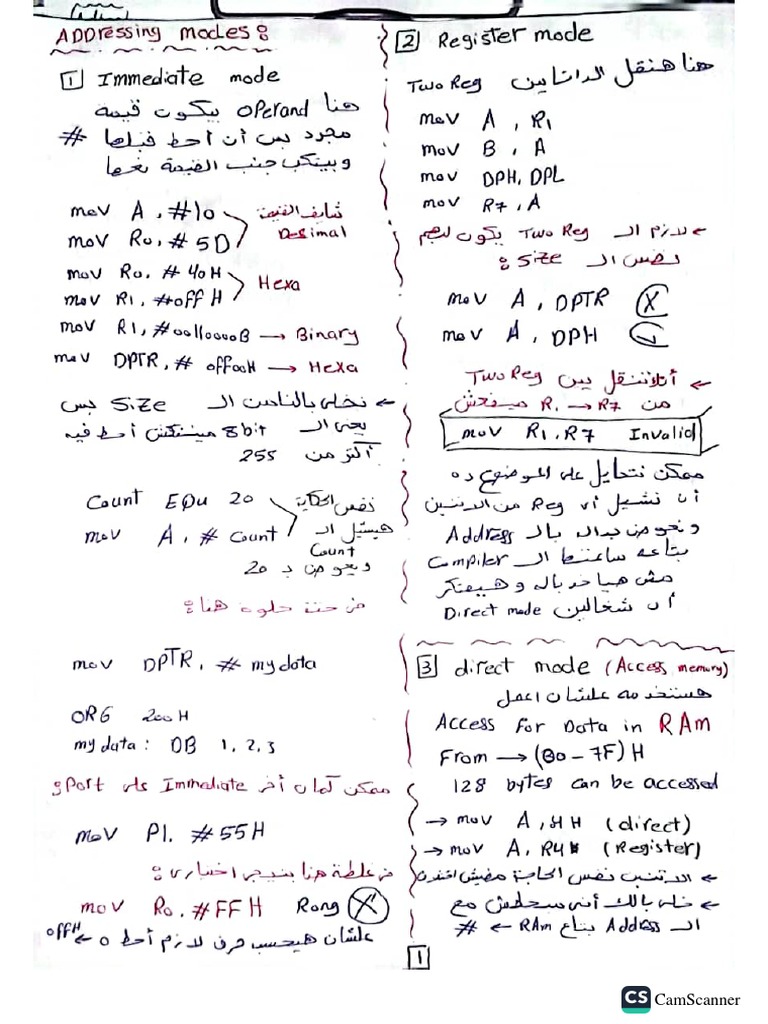 ADDressing modes:
1 Immediate mode
هنا operand بيكون قيمة
مجرد بس أن أحط قبلها #
وبيتكتب جنب القيمة نفسها
mov A, #10
mov R0, # 5D
شايف القيمة
Desimal
mov R0, # 40H
mov R1, #0ff H
Hexa
mov R1, #00110000B → Binary
mov DPTR, # 0ff00H → Hexa
← نخلي بالنا من ال Size بس
يعني ال 8bit مينفعش أحط فيه
أكتر من 255
Count EQU 20
mov A, # Count
نفس الحكاية
هيشيل ال
Count
ويعوض بـ 20
في حتة حلوة هنا:
mov DPTR, # mydata
ORG 200H
my data: DB 1, 2, 3
ممكن كمان أخر Immediate على Port:
mov P1, #55H
في غلطة هنا بتيجي اختياري:
mov R0, #FF H Rong X
علشان هيحسب حرف لازم أحط 0 ← 0ffH
2 Register mode
هنا هننقل الداتا بين Two Reg
mov A, R1
mov B, A
mov DPH, DPL
mov R7, A
← لازم ال Two Reg يكون ليهم
نفس ال Size:
mov A, DPTR X
mov A, DPH ✓
← Two Reg بين
من R1 → R7 مينفعش
mov R1, R7 Invalid
ممكن نتحايل على الموضوع ده
أن نشيل أي Reg من الاتنين
ونعوض بداله بال Address
بتاعه ساعتها ال Compiler
مش هياخد باله وهيفتكر
أن شغالين Direct mode
3 direct mode (Access memory)
هستخدمه علشان اعمل
Access For Data in RAm
From → (00 - 7F) H
128 bytes can be accessed
→ mov A, 4H (direct)
→ mov A, R4 (Register)
← الاتنين نفس الحاجة مفيش
← خلي بالك أني مبحطش مع
ال Address بتاع RAm ← #
1
CS CamScanner